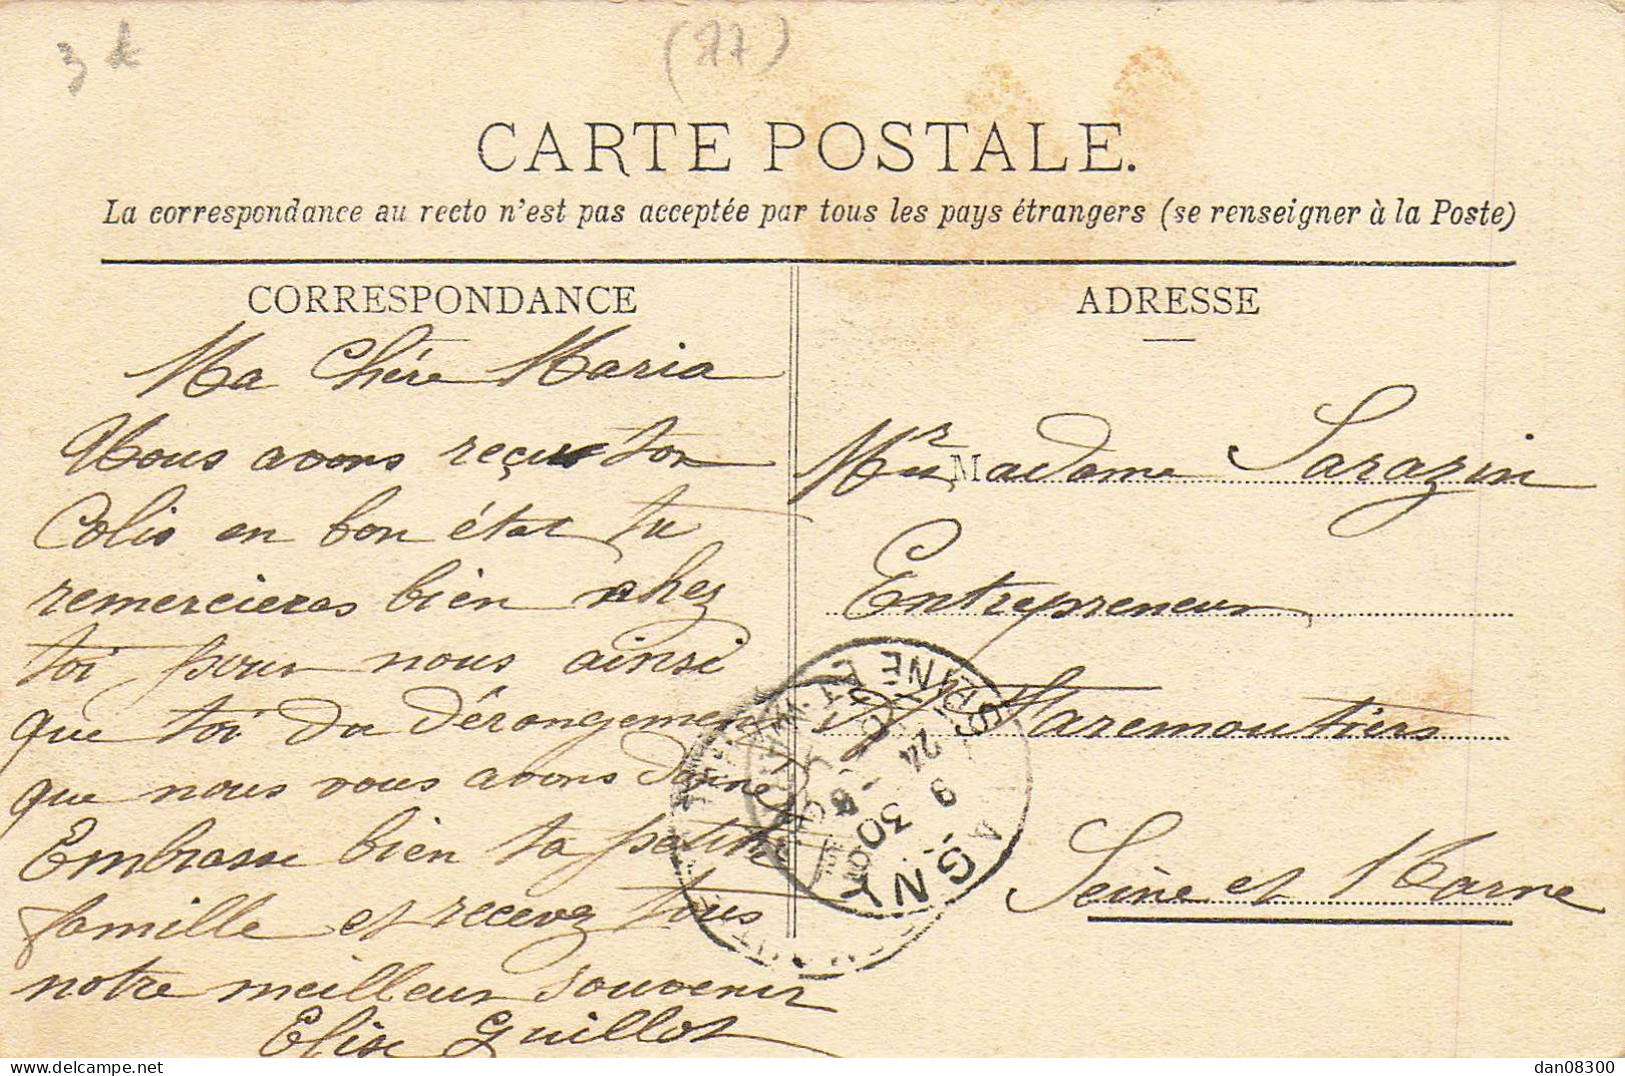 3 €
(77)
CARTE POSTALE.
La correspondance au recto n'est pas acceptée par tous les pays étrangers (se renseigner à la Poste)
CORRESPONDANCE
Ma Chère Maria
Nous avons reçus ton
Colis en bon état tu
remercieras bien chez
toi pour nous ainsi
que toi du dérangement
que nous vous avons donné
Embrasse bien ta petite
famille et recevez tous
notre meilleur souvenir
Elise Guillot
ADRESSE
Mr Madame Sarazin
Entrepreneur
Faremoutiers
Seine et Marne
LAGNY
9 30
24
SEINE ET M
delcampe.net
dan08300